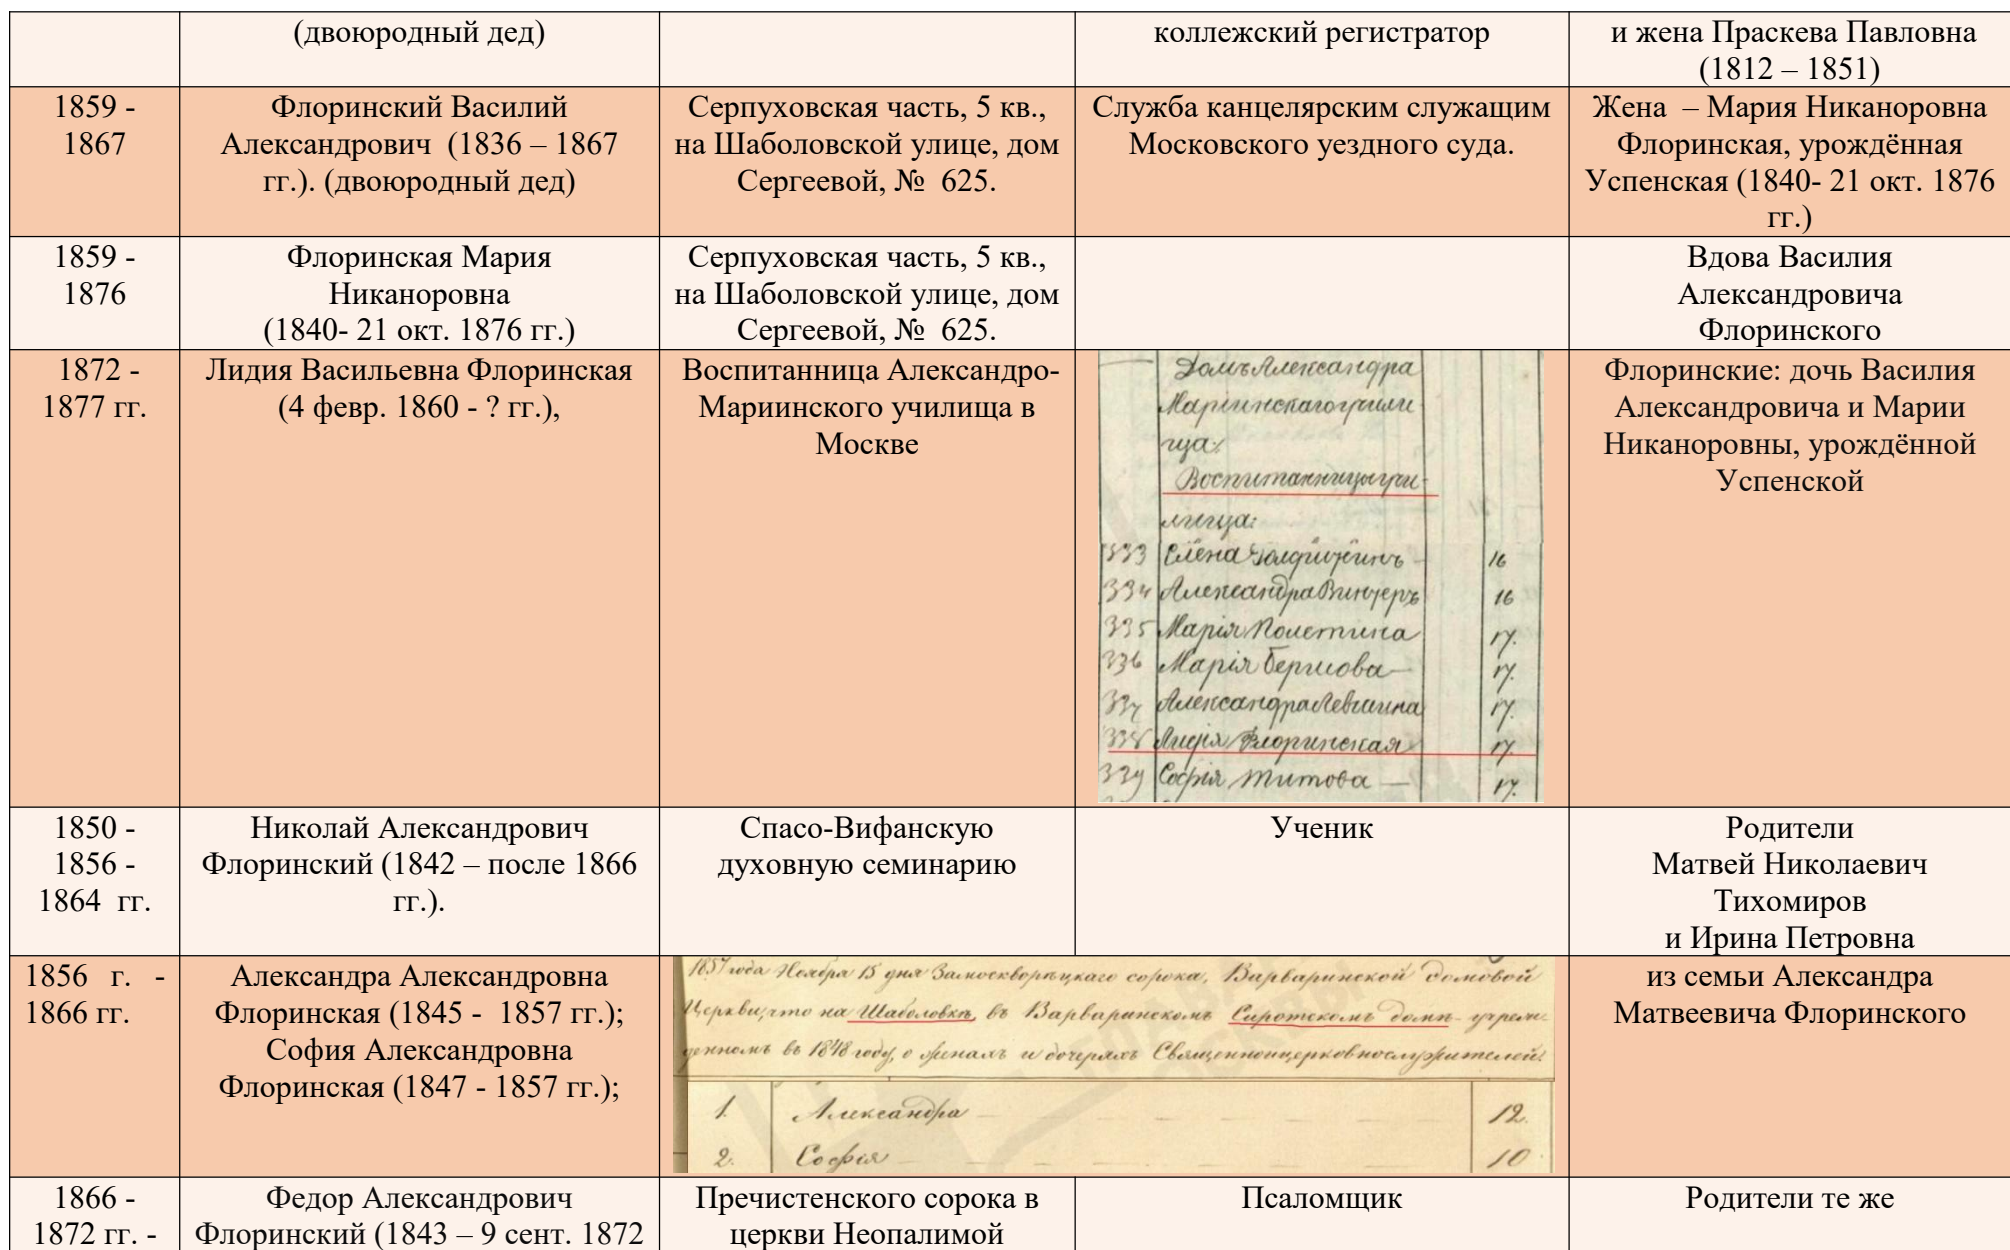 (двоюродный дед)
коллежский регистратор
и жена Праскева Павловна
(1812 – 1851)
1859 -
1867
Флоринский Василий
Александрович (1836 – 1867
гг.). (двоюродный дед)
Серпуховская часть, 5 кв.,
на Шаболовской улице, дом
Сергеевой, № 625.
Служба канцелярским служащим
Московского уездного суда.
Жена – Мария Никаноровна
Флоринская, урождённая
Успенская (1840- 21 окт. 1876
гг.)
1859 -
1876
Флоринская Мария
Никаноровна
(1840- 21 окт. 1876 гг.)
Серпуховская часть, 5 кв.,
на Шаболовской улице, дом
Сергеевой, № 625.
Вдова Василия
Александровича
Флоринского
1872 -
1877 гг.
Лидия Васильевна Флоринская
(4 февр. 1860 - ? гг.),
Воспитанница Александро-
Мариинского училища в
Москве
Домъ Александра
Маріинскаго учили
ща:
Воспитанницы учи-
лища:
333 Елена 16
334 Александра Винтеръ 16
335 Марія Полетика 17.
336 Марія 17.
337 Александра Левшина 17.
338 Лидія Флоринская 17.
339 Софія Титова — 17.
Флоринские: дочь Василия
Александровича и Марии
Никаноровны, урождённой
Успенской
1850 -
1856 -
1864 гг.
Николай Александрович
Флоринский (1842 – после 1866
гг.).
Спасо-Вифанскую
духовную семинарию
Ученик
Родители
Матвей Николаевич
Тихомиров
и Ирина Петровна
1856 г. -
1866 гг.
Александра Александровна
Флоринская (1845 - 1857 гг.);
София Александровна
Флоринская (1847 - 1857 гг.);
1857 года Ноября 15 дня Замоскворѣцкаго сорока, Варваринской домовой
Церкви, что на Шаболовкѣ, въ Варваринскомъ Сиротскомъ домѣ учреж-
денномъ въ 1848 году, о женахъ и дочеряхъ Священноцерковнослужителей:
1. Александра 12.
2. Софія 10
из семьи Александра
Матвеевича Флоринского
1866 -
1872 гг. -
Федор Александрович
Флоринский (1843 – 9 сент. 1872
Пречистенского сорока в
церкви Неопалимой
Псаломщик
Родители те же